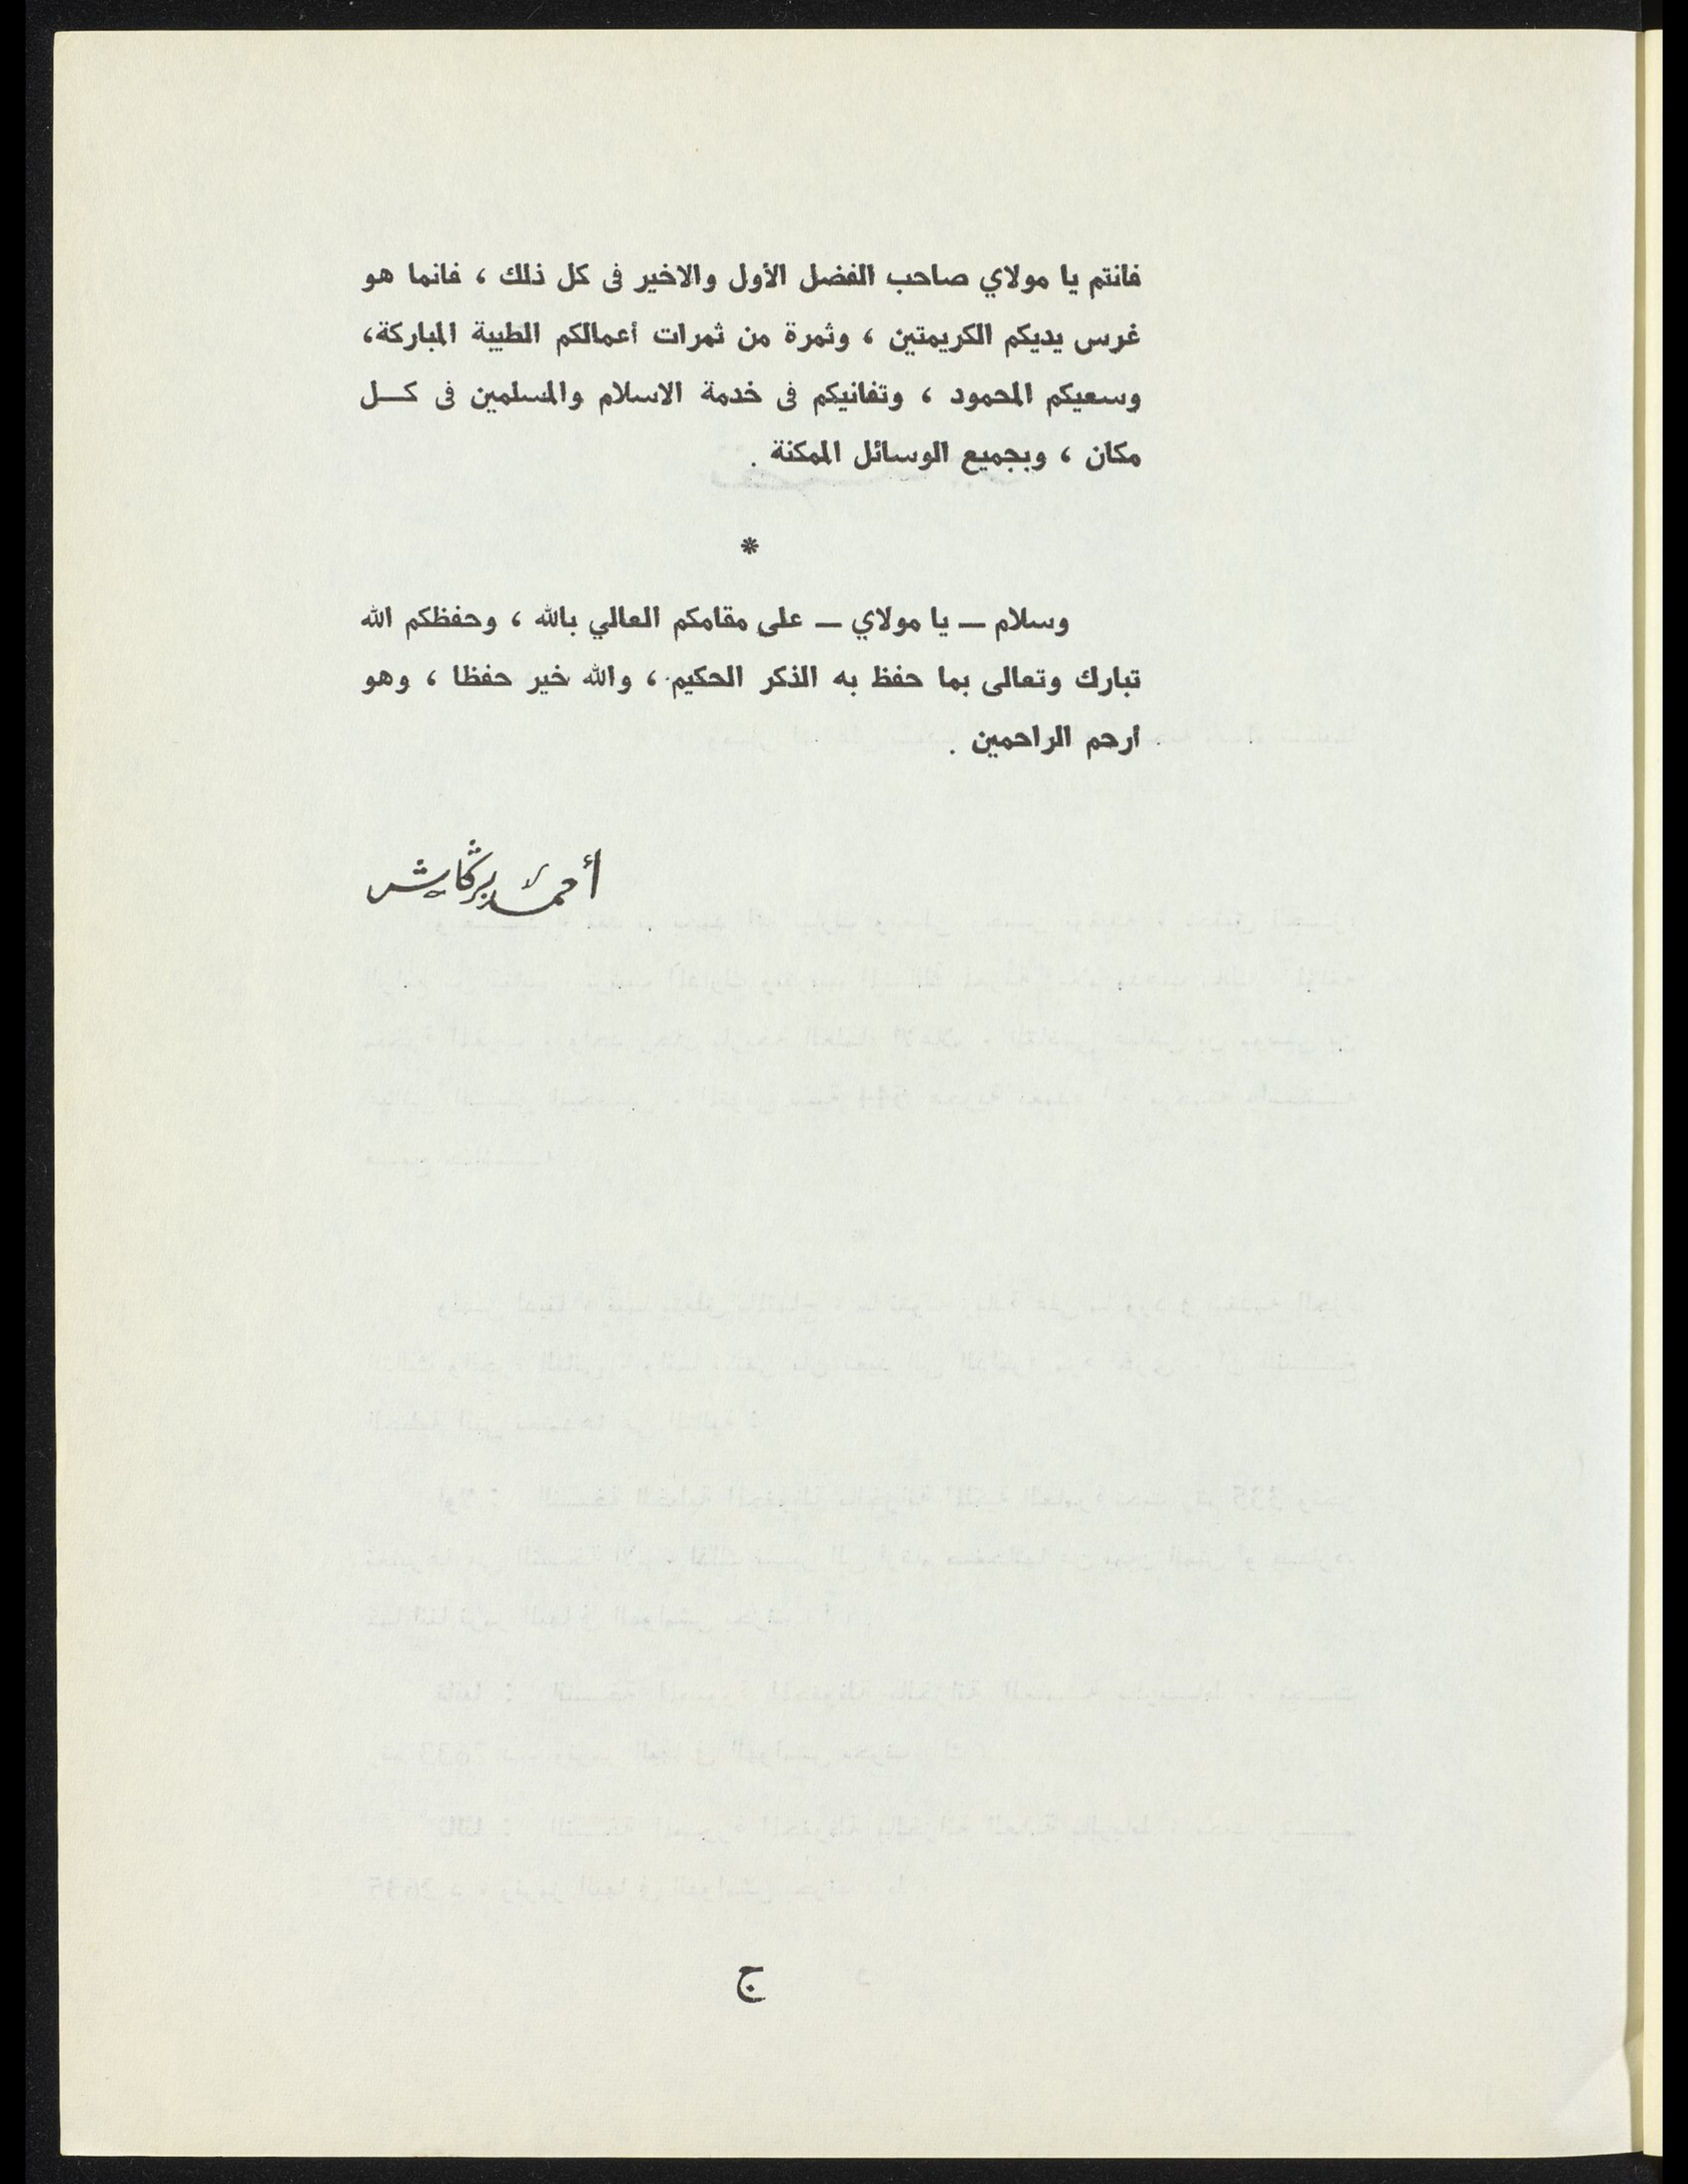 فانتم يا مولاي صاحب الفضل الأول والاخير فى كل ذلك ، فانما هو
غرس يديكم الكريمتين ، وثمرة من ثمرات أعمالكم الطيبة المباركة،
وسعيكم المحمود ، وتفانيكم فى خدمة الاسلام والمسلمين فى كــل
مكان ، وبجميع الوسائل الممكنة .
*
وسلام ــ يا مولاي ــ على مقامكم العالي بالله ، وحفظكم الله
تبارك وتعالى بما حفظ به الذكر الحكيم ، والله خير حفظا ، وهو
أرحم الراحمين .
أحمد برگاش
ج